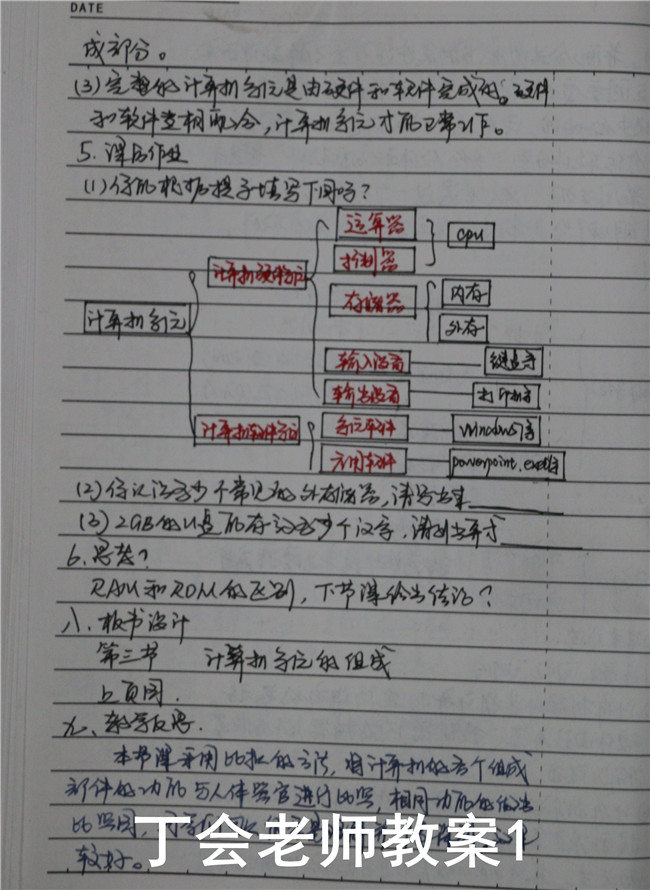 DATE
成部分。
(3)完整的计算机系统是由硬件和软件完成的。硬件
和软件互相配合,计算机系统才能正常工作。
5.课后作业
(1)你能根据提示填写下图吗?
运算器
控制器
cpu
计算机硬件系统
存储器
内存
外存
计算机系统
输入设备
键盘等
输出设备
打印机等
计算机软件系统
系统软件
windows等
应用软件
powerpoint.excel等
(2)你认识多少个常见的外存储器,请写出来
(3)2GB的U盘能存的多少个汉字,请列出算式
6.思考?
RAM和ROM的区别,下节课给出结论?
八.板书设计
第三节 计算机系统的组成
上页图.
九、教学反思.
本节课采用比拟的方法,将计算机的各个组成
部件的功能与人体器官进行比照,相同功能的
比照图,
较好。
丁会老师教案1